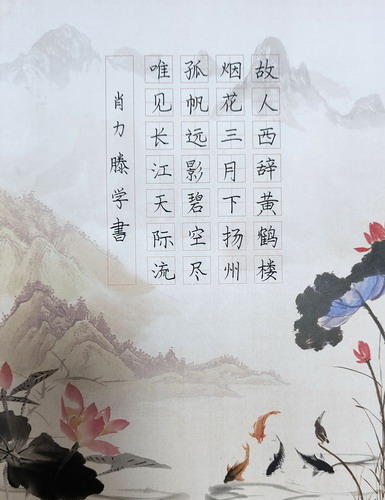 故人西辞黄鹤楼
烟花三月下扬州
孤帆远影碧空尽
唯见长江天际流
肖力滕学書